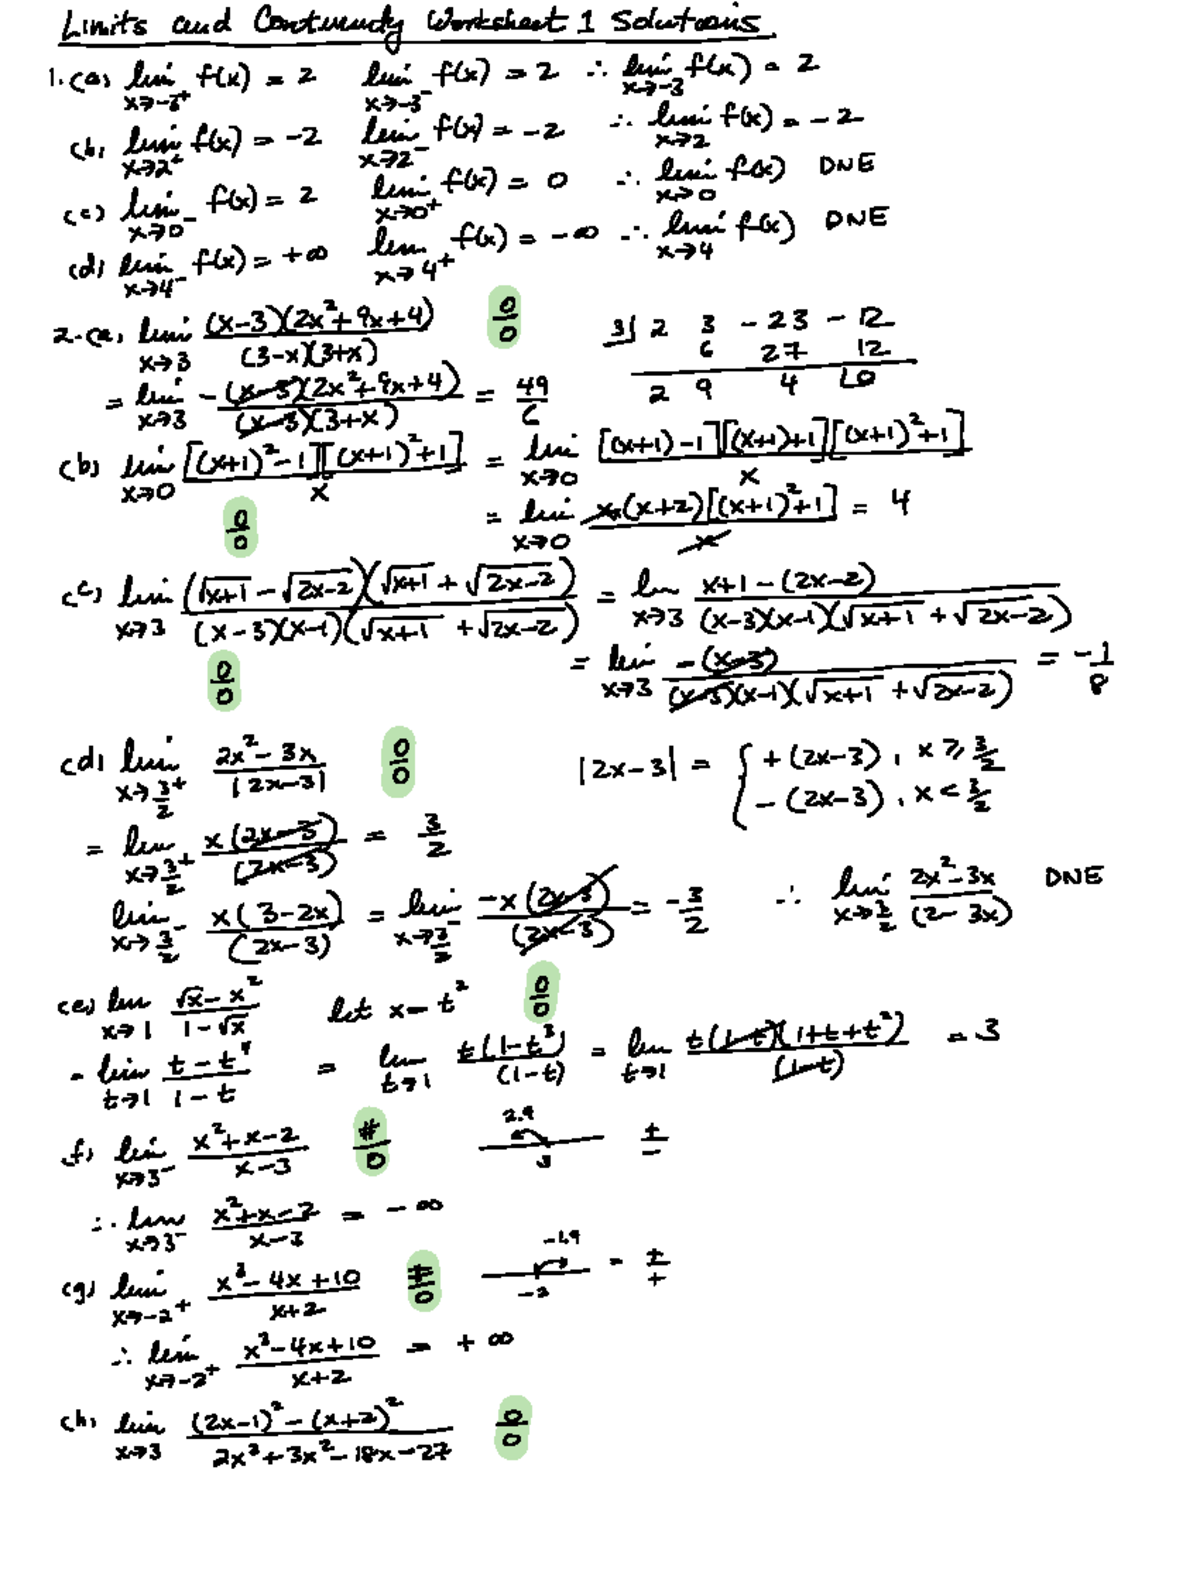 Limits and Continuity Worksheet 1 Solutions
1. (a) lim x→-3⁺ f(x) = 2   lim x→-3⁻ f(x) = 2 ∴ lim x→-3 f(x) = 2
(b) lim x→2⁺ f(x) = -2   lim x→2⁻ f(x) = -2 ∴ lim x→2 f(x) = -2
(c) lim x→0⁻ f(x) = 2   lim x→0⁺ f(x) = 0 ∴ lim x→0 f(x) DNE
(d) lim x→4⁻ f(x) = +∞   lim x→4⁺ f(x) = -∞ ∴ lim x→4 f(x) DNE
2. (a) lim x→3 (x-3)(2x²+9x+4) / (3-x)(3+x)   0/0   3| 2 3 -23 -12
6 27 12
2 9 4 |0
= lim x→3 -(x-3)(2x²+9x+4) / (x-3)(3+x) = 49/6
(b) lim x→0 [(x+1)²-1][(x+1)²+1] / x = lim x→0 [(x+1)-1][(x+1)+1][(x+1)²+1] / x
0/0   = lim x→0 x(x+2)[(x+1)²+1] / x = 4
(c) lim x→3 (√x+1 - √2x-2)(√x+1 + √2x-2) / (x-3)(x-1)(√x+1 + √2x-2) = lim x→3 x+1-(2x-2) / (x-3)(x-1)(√x+1 + √2x-2)
0/0   = lim x→3 -(x-3) / (x-3)(x-1)(√x+1 + √2x-2) = -1/8
(d) lim x→3/2⁺ 2x²-3x / |2x-3|   0/0   |2x-3| = { +(2x-3), x ≥ 3/2
-(2x-3), x < 3/2
= lim x→3/2⁺ x(2x-3) / (2x-3) = 3/2
lim x→3/2⁻ x(3-2x) / (2x-3) = lim x→3/2⁻ -x(2x-3) / (2x-3) = -3/2 ∴ lim x→3/2 2x²-3x / (2-3x) DNE
(e) lim x→1 √x-x² / 1-√x   let x = t²   0/0
= lim t→1 t-t⁴ / 1-t = lim t→1 t(1-t³) / (1-t) = lim t→1 t(1-t)(1+t+t²) / (1-t) = 3
f) lim x→3⁻ x²+x-2 / x-3   #/0   2.9   3   +/-
∴ lim x→3⁻ x²+x-2 / x-3 = -∞
(g) lim x→-2⁺ x³-4x+10 / x+2   #/0   -1.9   -2   = +/+
∴ lim x→-2⁺ x³-4x+10 / x+2 = +∞
(h) lim x→3 (2x-1)²-(x+2)² / 2x³+3x²-18x-27   0/0